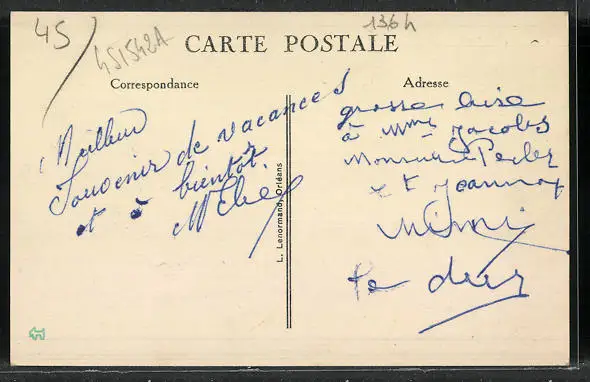 45
451542A
1364
CARTE POSTALE
Correspondance
Adresse
Meilleur
Souvenir de vacances
et à bientôt
grosse bise
à Mme Jacobs
Monsieur
et Jeannot
Mimi
L. Lenormand, Orléans